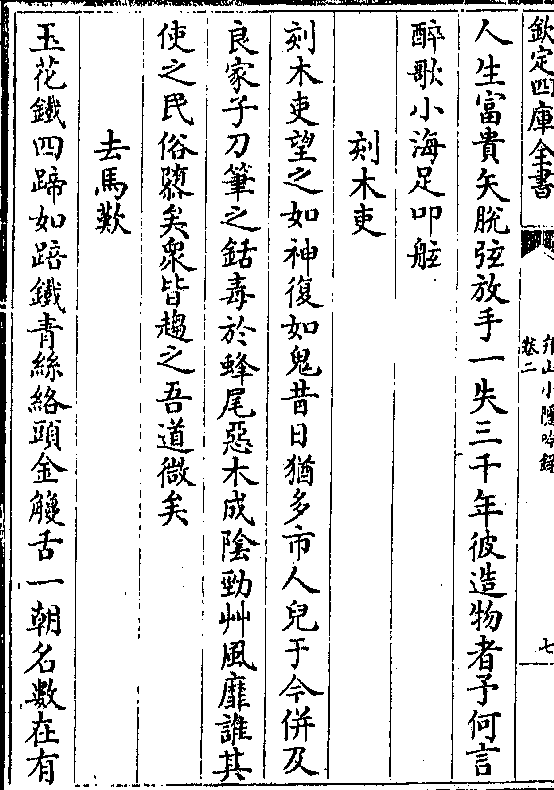 欽定四庫全書
卷二
七
人生富貴矢脫弦放手一失三千年彼造物者予何言
醉歌小海足叩舷
刻木吏
刻木吏望之如神復如鬼昔日猶多市人兒于今併及
良家子刀筆之銛毒於蜂尾惡木成陰勁艸風靡誰其
使之民俗隳矣衆皆趨之吾道微矣
去馬歎
玉花鐵四蹄如踣鐵青絲絡頭金艐舌一朝名數在有